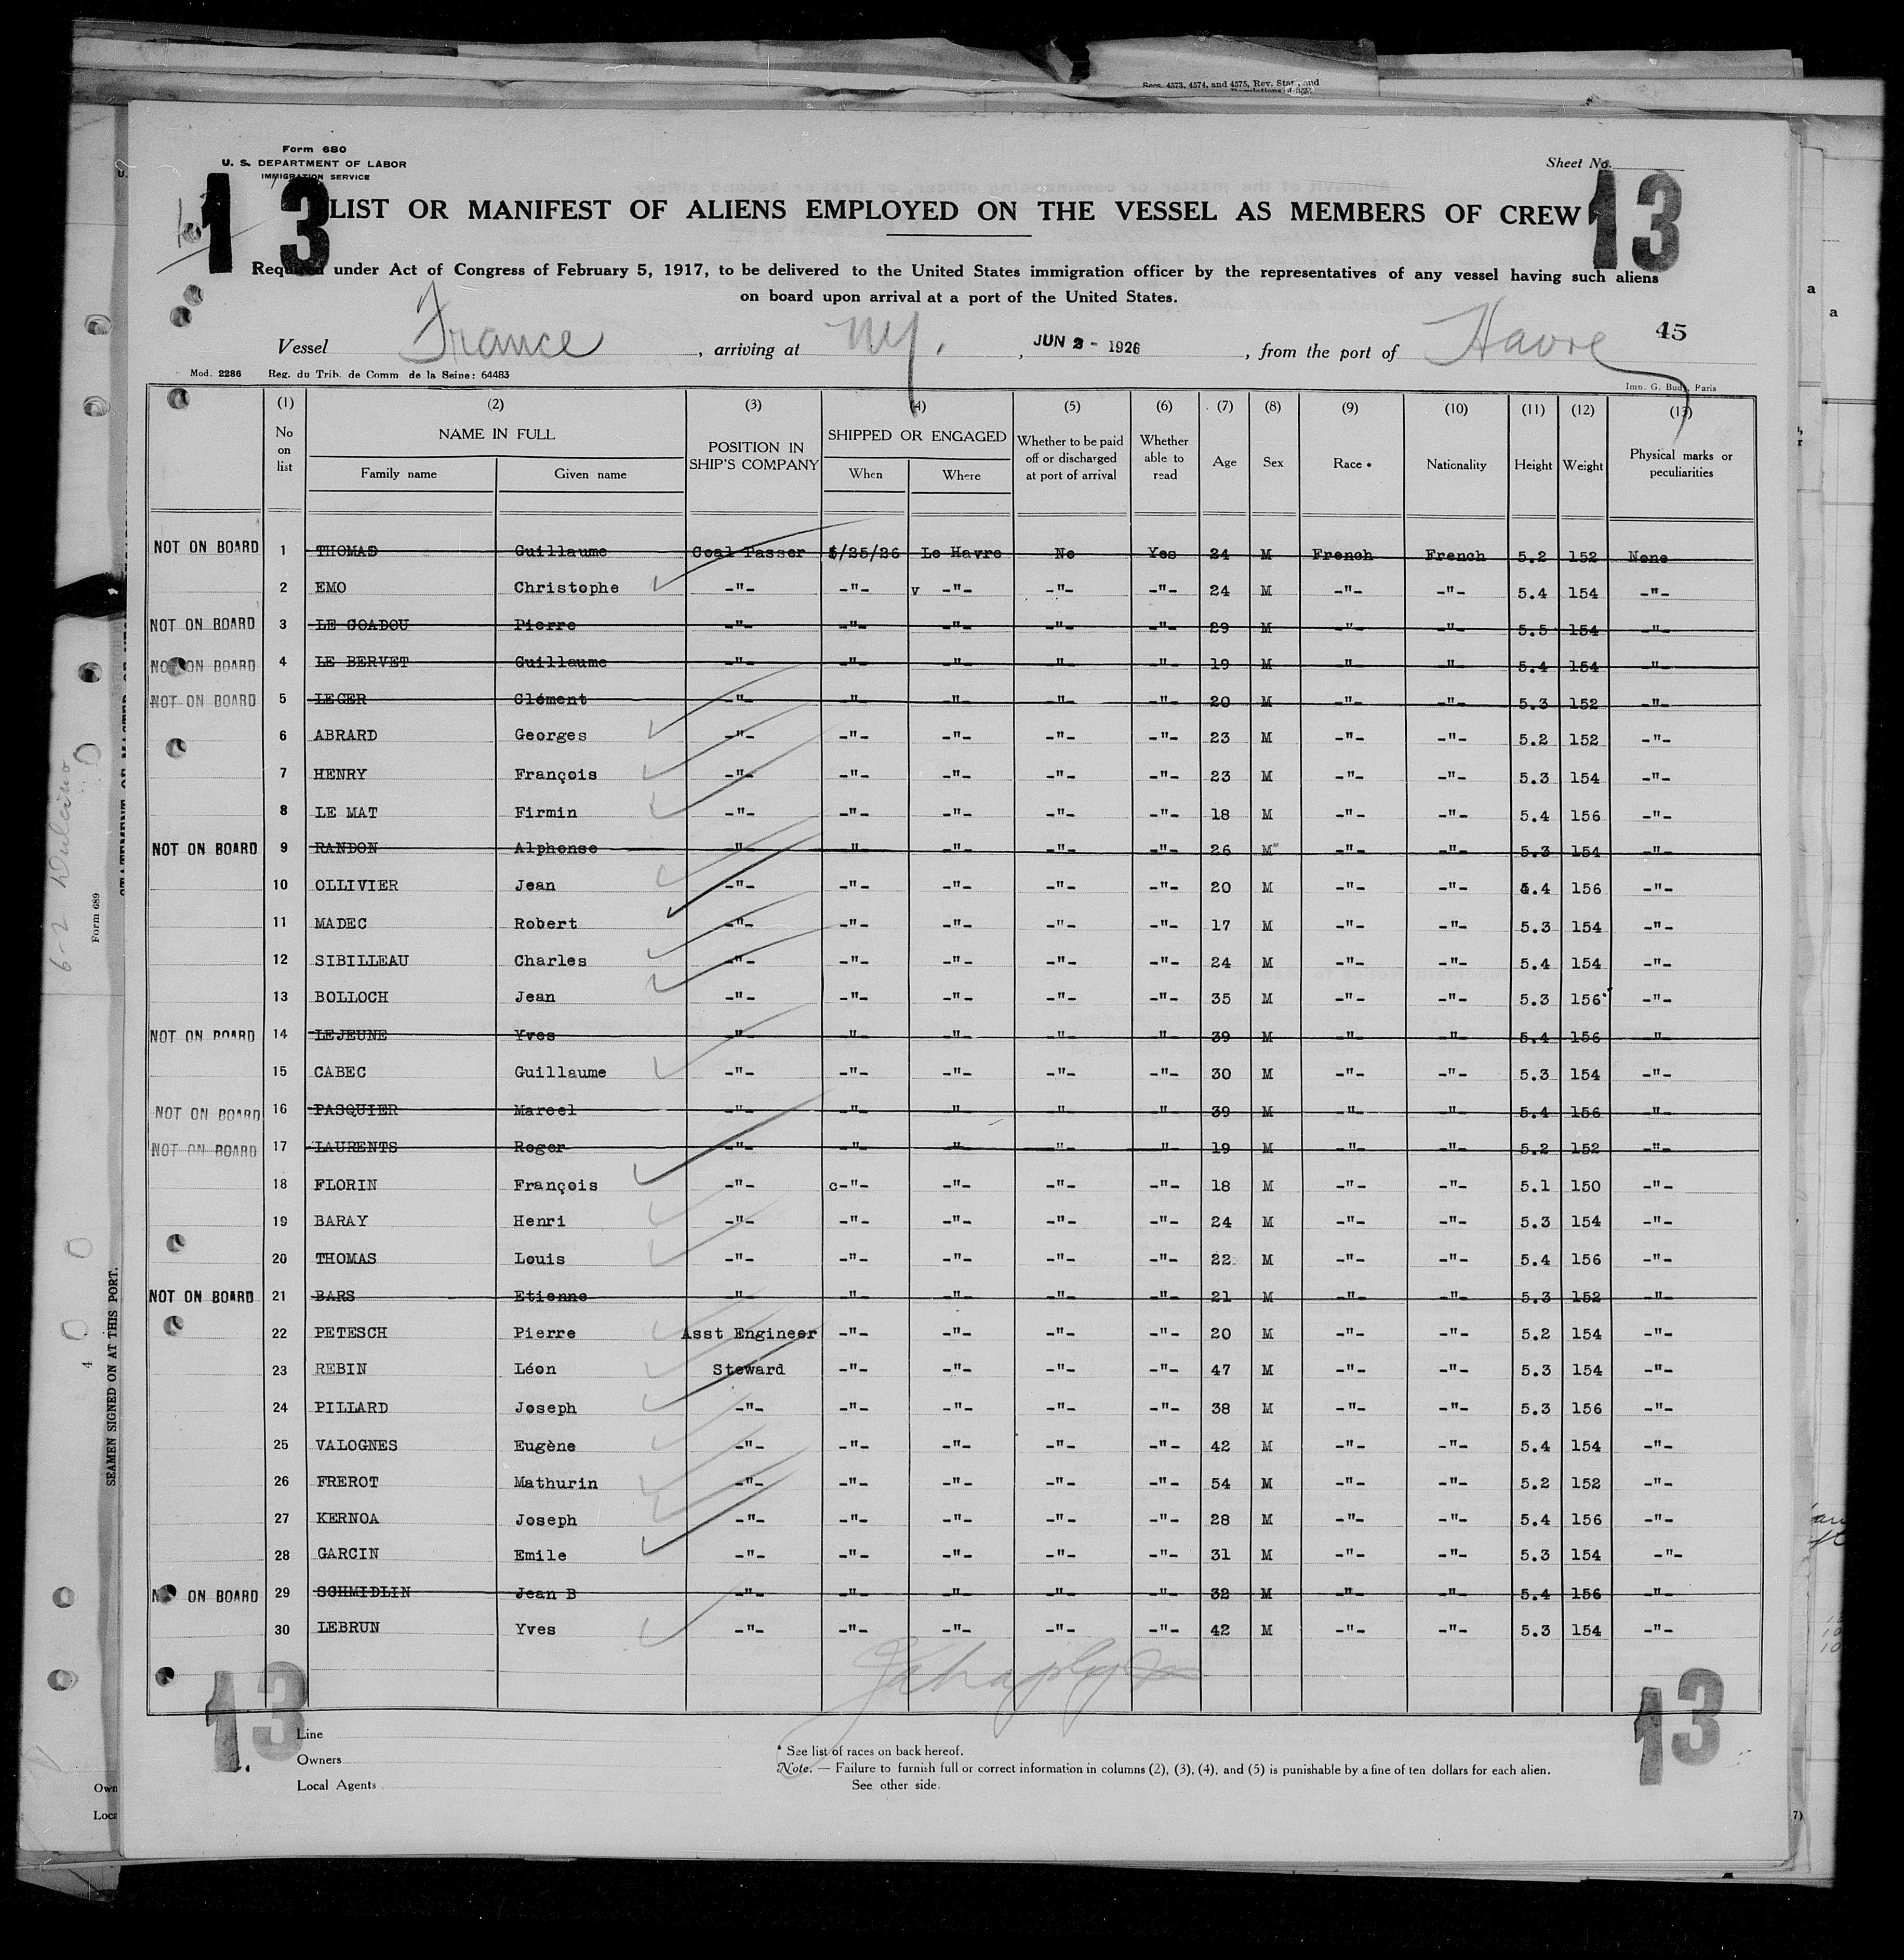 Secs. 4573, 4574, and 4575, Rev. Stat., and
Form 680
U. S. DEPARTMENT OF LABOR
IMMIGRATION SERVICE
Sheet No.
13 13
LIST OR MANIFEST OF ALIENS EMPLOYED ON THE VESSEL AS MEMBERS OF CREW
Required under Act of Congress of February 5, 1917, to be delivered to the United States immigration officer by the representatives of any vessel having such aliens
on board upon arrival at a port of the United States.
45
Vessel France, arriving at NY., JUN 2 - 1926, from the port of Havre
Mod. 2286 Reg. du Trib. de Comm. de la Seine: 64483 Imp. G. Budy, Paris
(1) (2) (3) (4) (5) (6) (7) (8) (9) (10) (11) (12) (13)
No on list NAME IN FULL Family name Given name POSITION IN SHIP'S COMPANY SHIPPED OR ENGAGED When Where Whether to be paid off or discharged at port of arrival Whether able to read Age Sex Race * Nationality Height Weight Physical marks or peculiarities
NOT ON BOARD 1 THOMAS Guillaume Coal Passer 5/25/26 Le Havre No Yes 24 M French French 5.2 152 None
2 EMO Christophe -"- -"- v -"- -"- -"- 24 M -"- -"- 5.4 154 -"-
NOT ON BOARD 3 LE COADOU Pierre -"- -"- -"- -"- -"- 29 M -"- -"- 5.5 154 -"-
NOT ON BOARD 4 LE BERVET Guillaume -"- -"- -"- -"- -"- 19 M -"- -"- 5.4 154 -"-
NOT ON BOARD 5 LEGER Clément -"- -"- -"- -"- -"- 20 M -"- -"- 5.3 152 -"-
6 ABRARD Georges -"- -"- -"- -"- -"- 23 M -"- -"- 5.2 152 -"-
7 HENRY François -"- -"- -"- -"- -"- 23 M -"- -"- 5.3 154 -"-
8 LE MAT Firmin -"- -"- -"- -"- -"- 18 M -"- -"- 5.4 156 -"-
NOT ON BOARD 9 RANDON Alphonse -"- -"- -"- -"- -"- 26 M -"- -"- 5.3 154 -"-
10 OLLIVIER Jean -"- -"- -"- -"- -"- 20 M -"- -"- 5.4 156 -"-
11 MADEC Robert -"- -"- -"- -"- -"- 17 M -"- -"- 5.3 154 -"-
12 SIBILLEAU Charles -"- -"- -"- -"- -"- 24 M -"- -"- 5.4 154 -"-
13 BOLLOCH Jean -"- -"- -"- -"- -"- 35 M -"- -"- 5.3 156 -"-
NOT ON BOARD 14 LEJEUNE Yves -"- -"- -"- -"- -"- 39 M -"- -"- 5.4 156 -"-
15 CABEC Guillaume -"- -"- -"- -"- -"- 30 M -"- -"- 5.3 154 -"-
NOT ON BOARD 16 PASQUIER Marcel -"- -"- -"- -"- -"- 39 M -"- -"- 5.4 156 -"-
NOT ON BOARD 17 LAURENTS Roger -"- -"- -"- -"- -"- 19 M -"- -"- 5.2 152 -"-
18 FLORIN François -"- c-"- -"- -"- -"- 18 M -"- -"- 5.1 150 -"-
19 BARAY Henri -"- -"- -"- -"- -"- 24 M -"- -"- 5.3 154 -"-
20 THOMAS Louis -"- -"- -"- -"- -"- 22 M -"- -"- 5.4 156 -"-
NOT ON BOARD 21 BARS Etienne -"- -"- -"- -"- -"- 21 M -"- -"- 5.3 152 -"-
22 PETESCH Pierre Asst Engineer -"- -"- -"- -"- 20 M -"- -"- 5.2 154 -"-
23 REBIN Léon Steward -"- -"- -"- -"- 47 M -"- -"- 5.3 154 -"-
24 PILLARD Joseph -"- -"- -"- -"- -"- 38 M -"- -"- 5.3 156 -"-
25 VALOGNES Eugène -"- -"- -"- -"- -"- 42 M -"- -"- 5.4 154 -"-
26 FREROT Mathurin -"- -"- -"- -"- -"- 54 M -"- -"- 5.2 152 -"-
27 KERNOA Joseph -"- -"- -"- -"- -"- 28 M -"- -"- 5.4 156 -"-
28 GARCIN Emile -"- -"- -"- -"- -"- 31 M -"- -"- 5.3 154 -"-
NOT ON BOARD 29 SCHMIDLIN Jean B -"- -"- -"- -"- -"- 32 M -"- -"- 5.4 156 -"-
30 LEBRUN Yves -"- -"- -"- -"- -"- 42 M -"- -"- 5.3 154 -"-
13 13
Line
Owners
Local Agents
* See list of races on back hereof.
Note. — Failure to furnish full or correct information in columns (2), (3), (4), and (5) is punishable by a fine of ten dollars for each alien.
See other side.
Form 689
SEAMEN SIGNED ON AT THIS PORT.